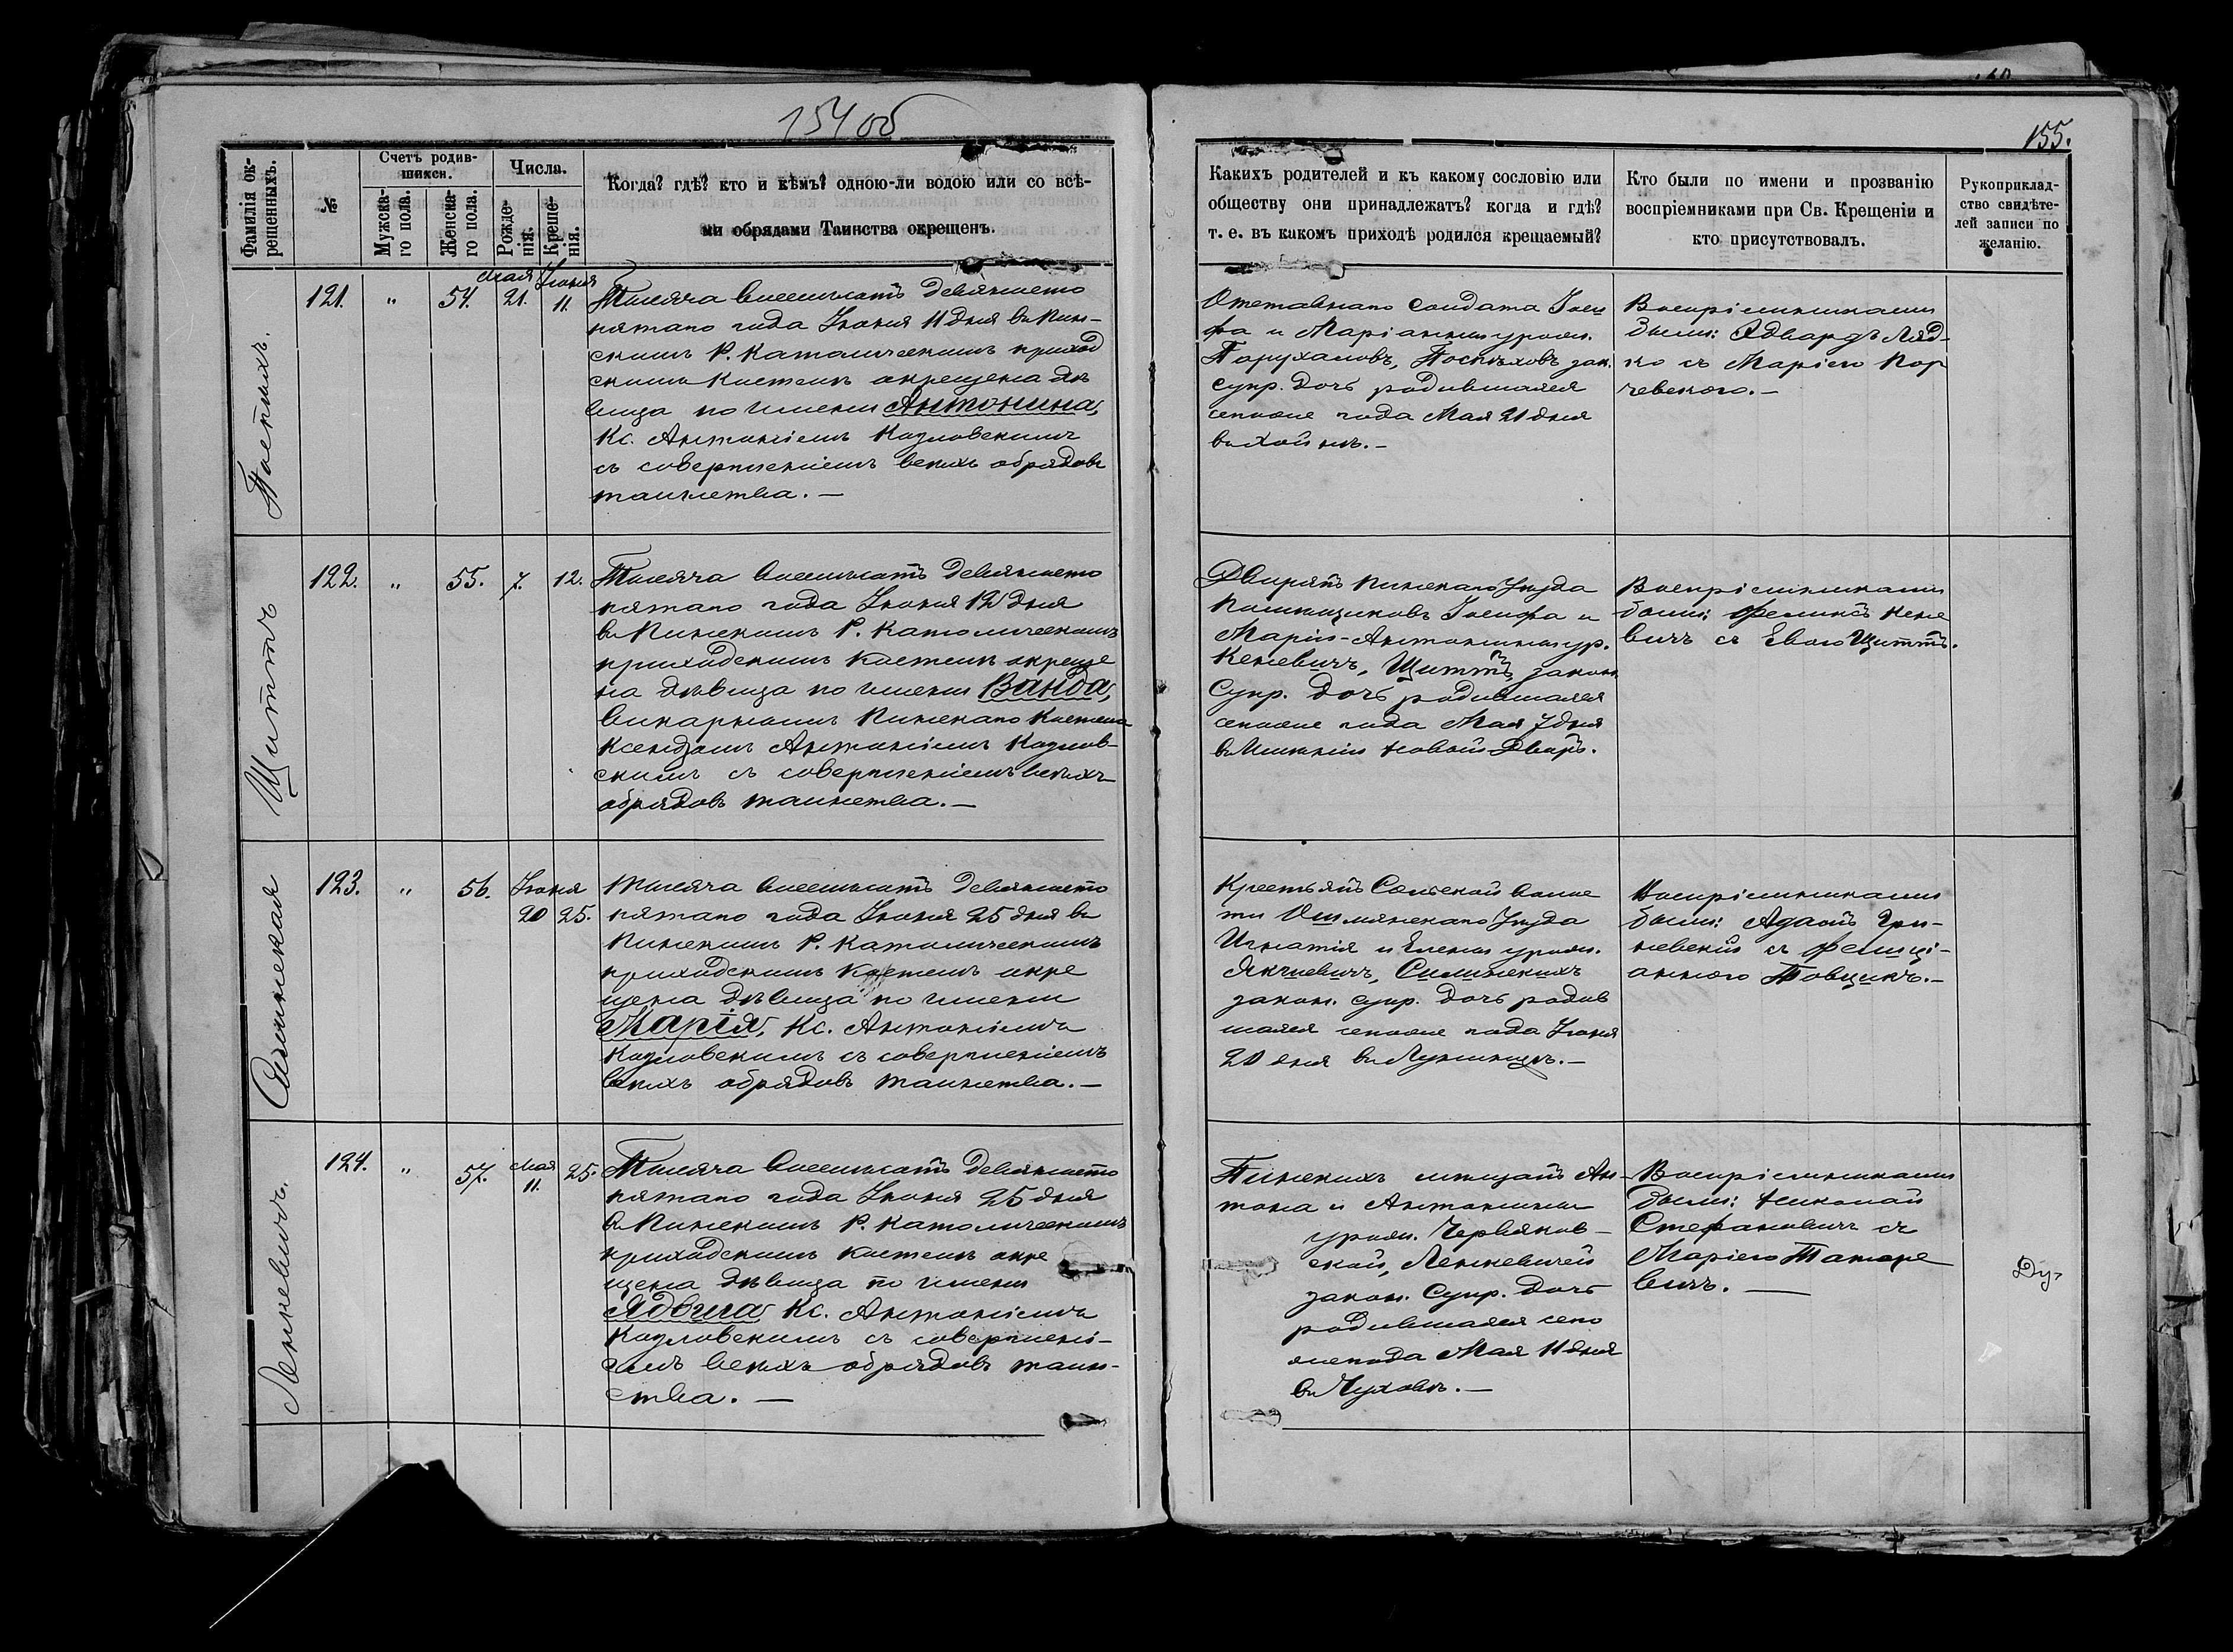 154 об
155.
Фамилія ок-
рещенныхъ.
№
Счетъ родив-
шихся.
Мужска-
го пола.
Женска-
го пола.
Числа.
Рожде-
нія.
Креще-
нія.
Когда? гдѣ? кто и кѣмъ? одною-ли водою или со всѣ-
ми обрядами Таинства окрещенъ.
Какихъ родителей и къ какому сословію или
обществу они принадлежатъ? когда и гдѣ?
т. е. въ какомъ приходѣ родился крещаемый?
Кто были по имени и прозванію
воспріемниками при Св. Крещеніи и
кто присутствовалъ.
Рукоприклад-
ство свидѣте-
лей записи по
желанію.
121.
"
54.
Мая
21.
Іюня
11.
Тысяча восемьсотъ девяносто
пятаго года Іюня 11 дня въ Пин-
скомъ Р. Католическомъ приход
скомъ костелѣ окрещена дѣ
вица по имени Антонина,
Кс. Антоніемъ Козловскимъ
съ совершеніемъ всѣхъ обрядовъ
таинства. —
Отставнаго солдата Іоси
фа и Маріанны урожд.
зак.
супр. дочь родившаяся
сего года Мая 21 дня
Воспріемниками
были: Эдвардъ Ляд-
ко съ Маріею Кор
чевскою. —
Щиттъ
122.
"
55.
7.
12.
Тысяча восемьсотъ девяносто
пятаго года Іюня 12 дня
въ Пинскомъ Р. Католическомъ
приходскомъ костелѣ окреще
на дѣвица по имени Ванда,
викарнымъ Пинскаго костела
Ксендзомъ Антоніемъ Козлов-
скимъ съ совершеніемъ всѣхъ
обрядовъ таинства. —
Дворянъ Пинскаго Уѣзда
Помѣщиковъ Іосифа и
Маріи-Антонины ур.
Кеневичъ, Щиттъ, закон.
Супр. дочь родившаяся
сего года Мая 7 дня
въ имѣніи Новой Дворъ.
Воспріемниками
были: Феликсъ Кене
вичъ съ Евою Щиттъ.
Силинская
123.
"
56.
Іюня
20
25.
Тысяча восемьсотъ девяносто
пятаго года Іюня 25 дня въ
Пинскомъ Р. Католическомъ
приходскомъ костелѣ окре
щена дѣвица по имени
Марія, Кс. Антоніемъ
Козловскимъ съ совершеніемъ
всѣхъ обрядовъ таинства. —
Крестьянъ Сольской волос
ти Ошмянскаго Уѣзда
Игнатія и Елены урожд.
Силинскихъ
закон. супр. дочь родив
шаяся сего года Іюня
20 дня въ Лунинцѣ. —
Воспріемниками
были: Адамъ Гри-
невскій съ Фелиці-
анною
Ленкевичъ.
124.
"
57.
Мая
11.
25.
Тысяча восемьсотъ девяносто
пятаго года Іюня 25 дня
въ Пинскомъ Р. Католическомъ
приходскомъ костелѣ окре
щена дѣвица по имени
Ядвига, Кс. Антоніемъ
Козловскимъ съ совершені-
емъ всѣхъ обрядовъ таин-
ства. —
Пинскихъ мѣщанъ Ан-
тона и Антонины
урожд. Червяков-
ской, Ленкевичей
закон. Супр. дочь
родившаяся сего
года Мая 11 дня
въ Чуховѣ. —
Воспріемниками
были: Николай
Стефановичъ съ
Маріею Татаре
вичъ. —